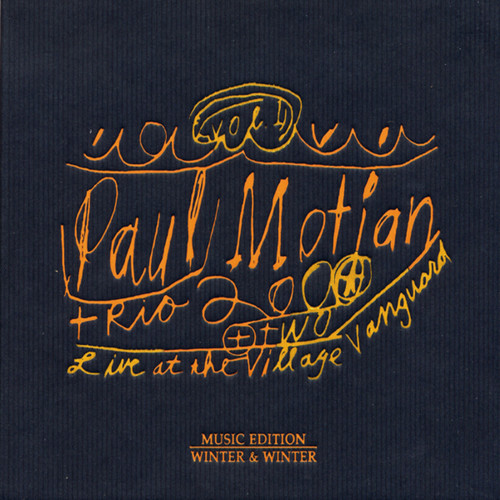 VOL. I
Paul Motian
tRio 2000
+ two
Live at the Village Vanguard
MUSIC EDITION
WINTER & WINTER